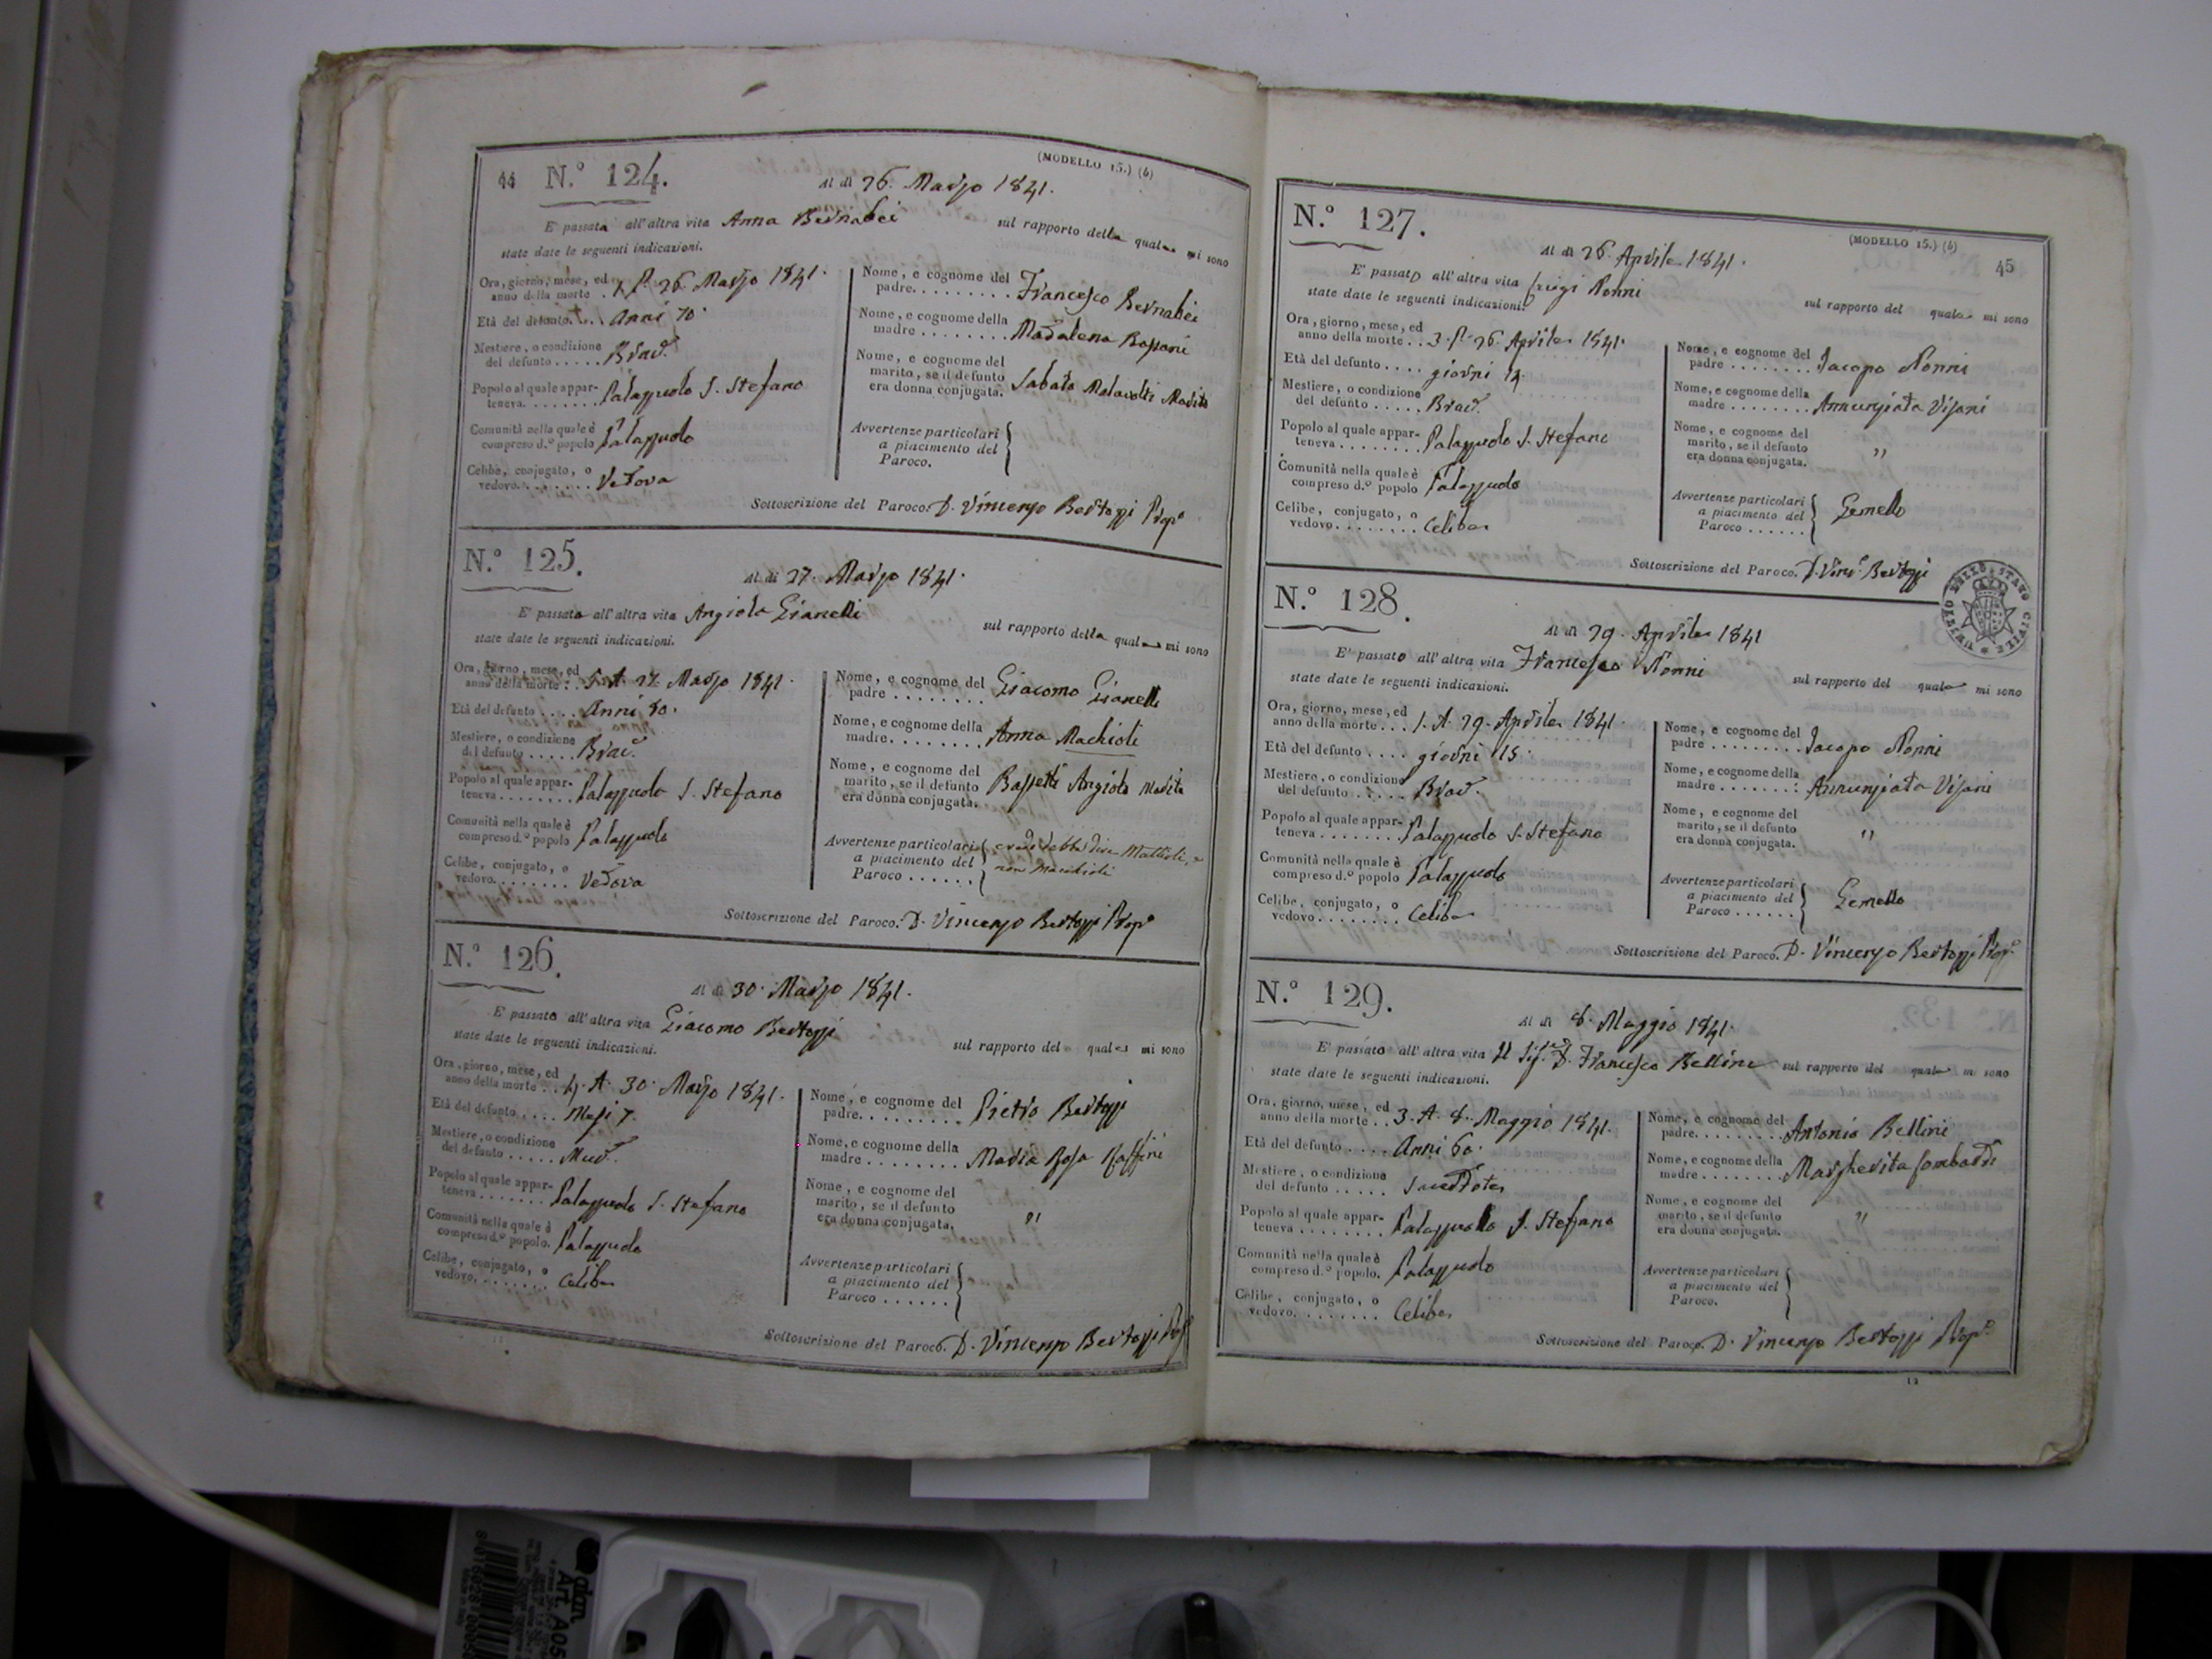 44 N.º 124. (MODELLO 15.) (b)
Al dì 26. Marzo 1841.
E' passata all'altra vita Anna Bernabei sul rapporto della quale mi sono
state date le seguenti indicazioni.
Ora, giorno, mese, ed
anno della morte . P. 26. Marzo 1841.
Età del defunto. . . . Anni 70.
Mestiere, o condizione
del defunto . . . . . Brac.
Popolo al quale appar-
teneva. . . . . . . . Palazzuolo S. Stefano
Comunità nella quale è
compreso d.º popolo Palazzuolo
Celibe, conjugato, o
vedovo. . . . . . . . Vedova
Nome, e cognome del
padre. . . . . . . . . Francesco Bernabei
Nome, e cognome della
madre . . . . . . . . Madalena Bassani
Nome, e cognome del
marito, se il defunto
era donna conjugata. Sabato Malavolti Marito
Avvertenze particolari
a piacimento del
Paroco.
Sottoscrizione del Paroco. D. Vincenzo Bertozzi Prop.º
N.º 125.
Al dì 27. Marzo 1841.
E' passata all'altra vita Angiola Gianelli sul rapporto della quale mi sono
state date le seguenti indicazioni.
Ora, giorno, mese, ed
anno della morte . . 5. A. 27. Marzo 1841.
Età del defunto . . . . Anni 80.
Mestiere, o condizione
del defunto . . . . . Brac.
Popolo al quale appar-
teneva . . . . . . . . Palazzuolo S. Stefano
Comunità nella quale è
compreso d.º popolo Palazzuolo
Celibe, conjugato, o
vedovo. . . . . . . . Vedova
Nome, e cognome del
padre . . . . . . . . Giacomo Gianelli
Nome, e cognome della
madre. . . . . . . . Anna Machioli
Nome, e cognome del
marito, se il defunto
era donna conjugata. Bassetti Angiolo Marito
Avvertenze particolari
a piacimento del
Paroco . . . . . . dire Mattioli, e
non Macchioli
Sottoscrizione del Paroco. D. Vincenzo Bertozzi Prop.º
N.º 126.
Al dì 30. Marzo 1841.
E' passato all'altra vita Giacomo Bertozzi sul rapporto del quale mi sono
state date le seguenti indicazioni.
Ora, giorno, mese, ed
anno della morte . . 4. A. 30. Marzo 1841.
Età del defunto . . . . Mesi 7.
Mestiere, o condizione
del defunto . . . . .
Popolo al quale appar-
teneva . . . . . . . Palazzuolo S. Stefano
Comunità nella quale è
compreso d.º popolo. Palazzuolo
Celibe, conjugato, o
vedovo. . . . . . . . Celibe
Nome, e cognome del
padre. . . . . . . . Pietro Bertozzi
Nome, e cognome della
madre . . . . . . . . Maria Rosa Raffini
Nome, e cognome del
marito, se il defunto
era donna conjugata. "
Avvertenze particolari
a piacimento del
Paroco . . . . . .
Sottoscrizione del Paroco. D. Vincenzo Bertozzi Prop.º
N.º 127. (MODELLO 15.) (b) 45
Al dì 26. Aprile 1841.
E' passato all'altra vita Luigi Nonni sul rapporto del quale mi sono
state date le seguenti indicazioni.
Ora, giorno, mese, ed
anno della morte . . 3. P. 26. Aprile 1841.
Età del defunto . . . . giorni
Mestiere, o condizione
del defunto . . . . . Brac.
Popolo al quale appar-
teneva . . . . . . . . Palazzuolo S. Stefano
Comunità nella quale è
compreso d.º popolo Palazzuolo
Celibe, conjugato, o
vedovo. . . . . . . . Celibe
Nome, e cognome del
padre . . . . . . . . Jacopo Nonni
Nome, e cognome della
madre . . . . . . . . Annunziata Visani
Nome, e cognome del
marito, se il defunto
era donna conjugata. "
Avvertenze particolari
a piacimento del
Paroco . . . . . . Gemello
Sottoscrizione del Paroco. D. Vinc.º Bertozzi
UFFIZIO DELLO STATO CIVILE
N.º 128.
Al dì 29. Aprile 1841
E' passato all'altra vita Francesco Nonni sul rapporto del quale mi sono
state date le seguenti indicazioni.
Ora, giorno, mese, ed
anno della morte . . . 1. A. 29. Aprile 1841.
Età del defunto . . . . giorni 15.
Mestiere, o condizione
del defunto . . . . . Brac.
Popolo al quale appar-
teneva . . . . . . . . Palazzuolo S. Stefano
Comunità nella quale è
compreso d.º popolo Palazzuolo
Celibe, conjugato, o
vedovo . . . . . . . . Celibe
Nome, e cognome del
padre . . . . . . . . . Jacopo Nonni
Nome, e cognome della
madre . . . . . . . . Annunziata Visani
Nome, e cognome del
marito, se il defunto
era donna conjugata. "
Avvertenze particolari
a piacimento del
Paroco . . . . . . Gemello
Sottoscrizione del Paroco. D. Vincenzo Bertozzi Prop.º
N.º 129.
Al dì 8. Maggio 1841.
E' passato all'altra vita Il Sig.re D. Francesco Bellini sul rapporto del quale mi sono
state date le seguenti indicazioni.
Ora, giorno, mese, ed
anno della morte . . 3. A. 8. Maggio 1841.
Età del defunto . . . . Anni 60.
Mestiere, o condizione
del defunto . . . . . Sacerdote
Popolo al quale appar-
teneva . . . . . . . . Palazzuolo S. Stefano
Comunità nella quale è
compreso d.º popolo. Palazzuolo
Celibe, conjugato, o
vedovo. . . . . . . . Celibe
Nome, e cognome del
padre. . . . . . . . . Antonio Bellini
Nome, e cognome della
madre . . . . . . . . Margherita Lombardi
Nome, e cognome del
marito, se il defunto
era donna conjugata. "
Avvertenze particolari
a piacimento del
Paroco.
Sottoscrizione del Paroco. D. Vincenzo Bertozzi Prop.º
12
Art. A05